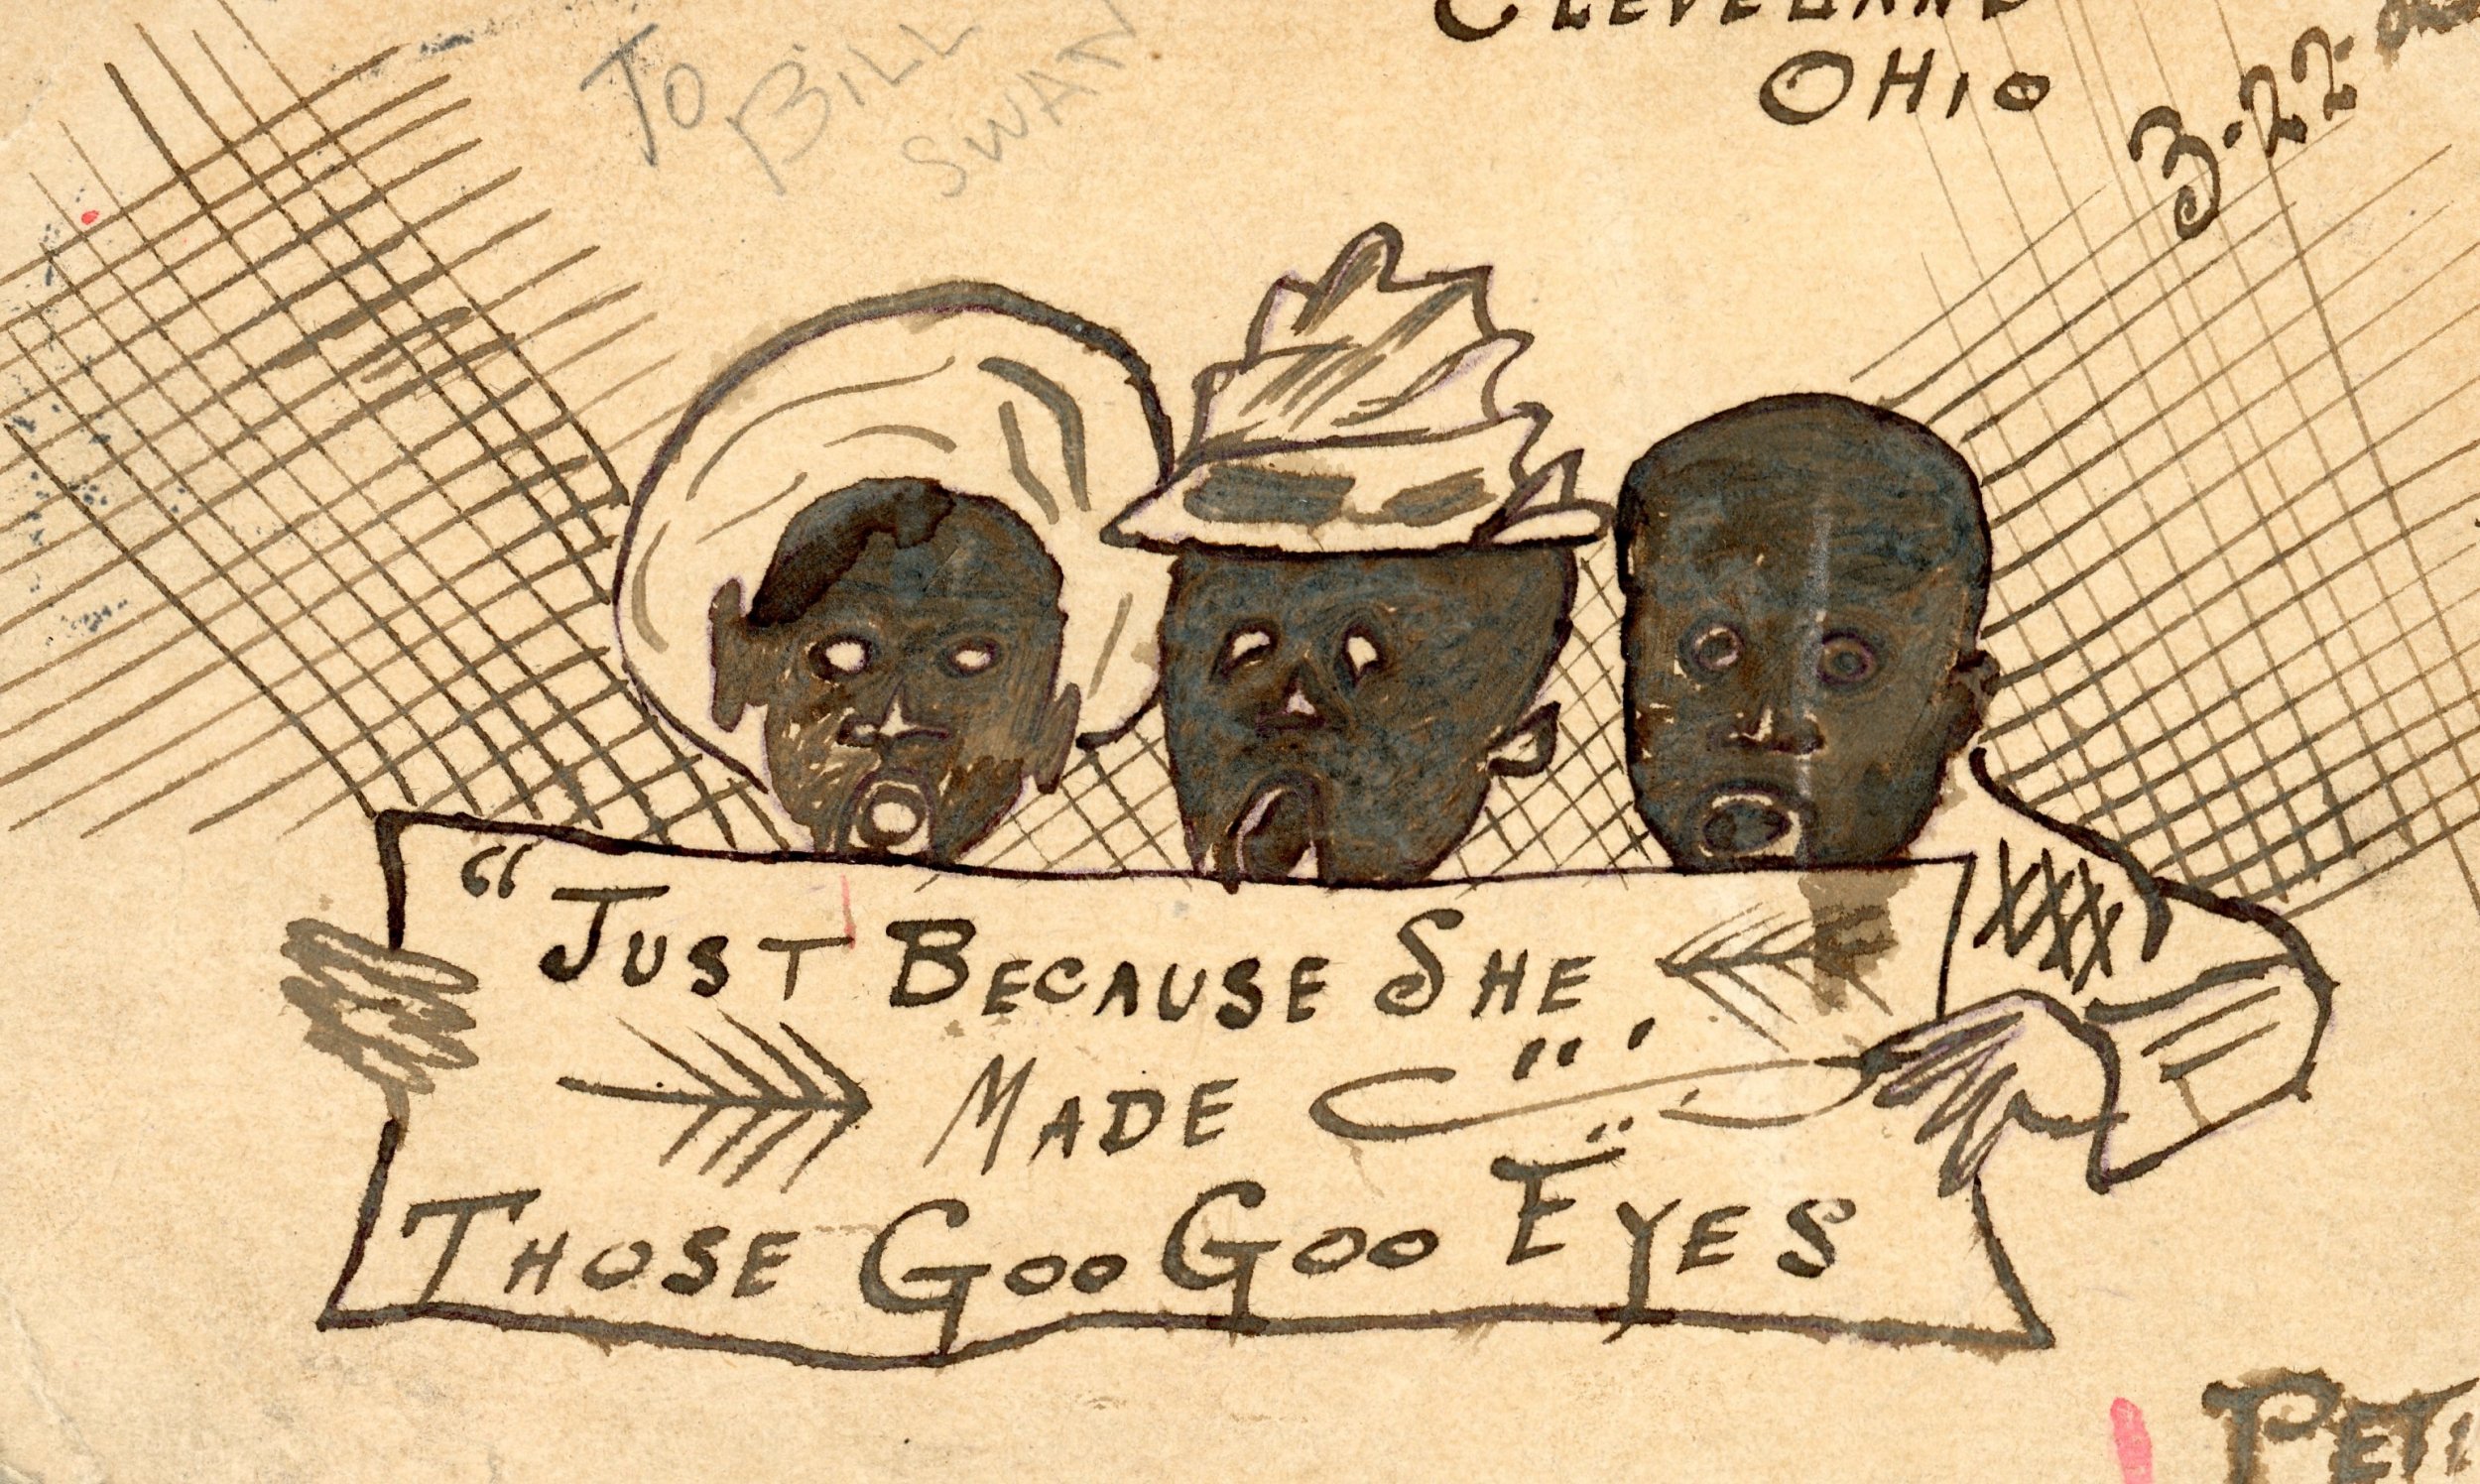 CLEVELAND
OHIO
3-22-
TO
BILL
SWAN
"JUST BECAUSE SHE
MADE
THOSE GOO GOO EYES
PETI